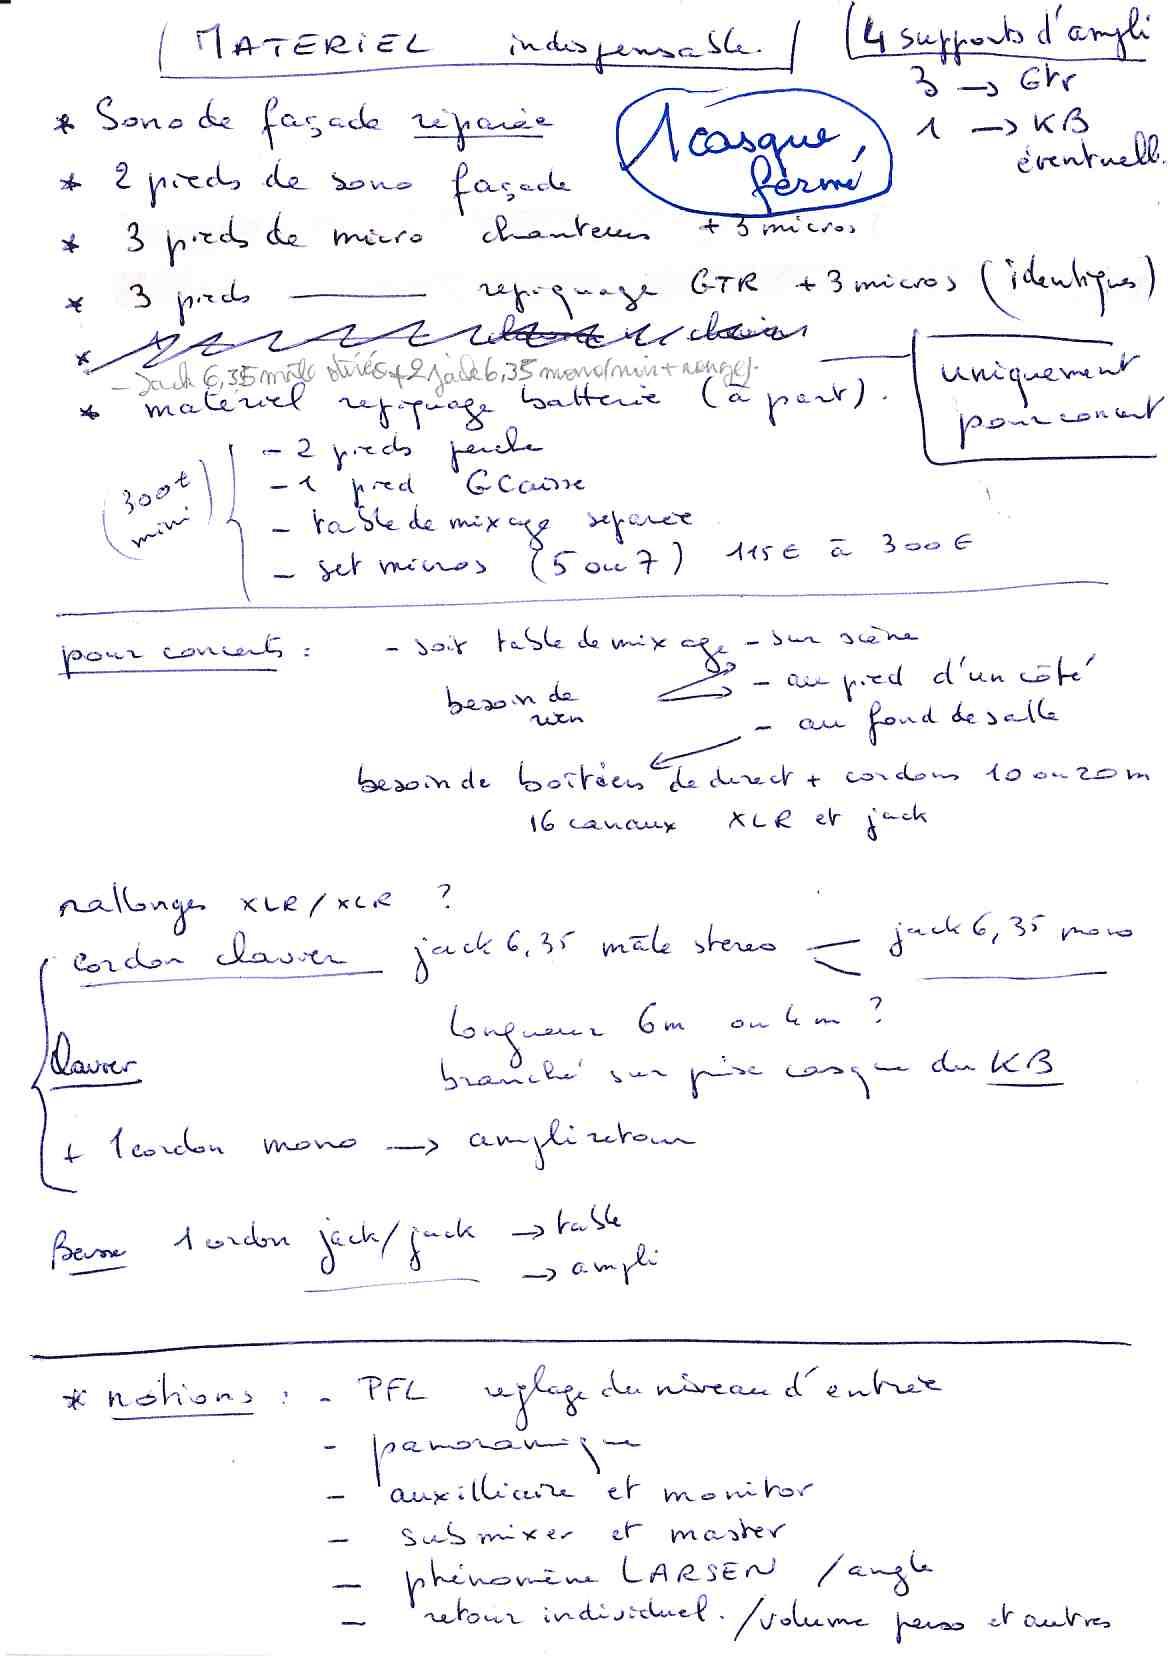 MATERIEL indispensable.
4 supports d'ampli
3 → Gtr
1 → KB
éventuell.
1 casque
fermé
* Sono de façade réparée
* 2 pieds de sono façade
* 3 pieds de micro chanteurs + 3 micros
* 3 pieds ——— repiquage GTR + 3 micros (identiques)
*
- Jack 6,35 mâle stéréo + 2 jack 6,35 mono (noir + rouge).
* matériel repiquage batterie (à part).
uniquement
pour concert
(300€
mini)
- 2 pieds perche
- 1 pied GCaisse
- table de mixage séparée
- set micros (5 ou 7) 115€ à 300€
pour concerts : - soit table de mixage - sur scène
besoin de
rien
- au pied d'un côté
- au fond de salle
besoin de boîtiers de direct + cordons 10 ou 20 m
16 canaux XLR et jack
rallonges XLR/XLR ?
cordon clavier jack 6,35 mâle stereo < jack 6,35 mono
longueur 6m ou 4m ?
Clavier
branché sur prise casque du KB
+ 1 cordon mono → ampli retour
Basse 1 cordon jack/jack → table
→ ampli
* notions : - PFL reglage du niveau d'entrée
- panoramique
- auxilliaire et monitor
- submixer et master
- phénomène LARSEN /angle
- retour individuel. /volume perso et autres